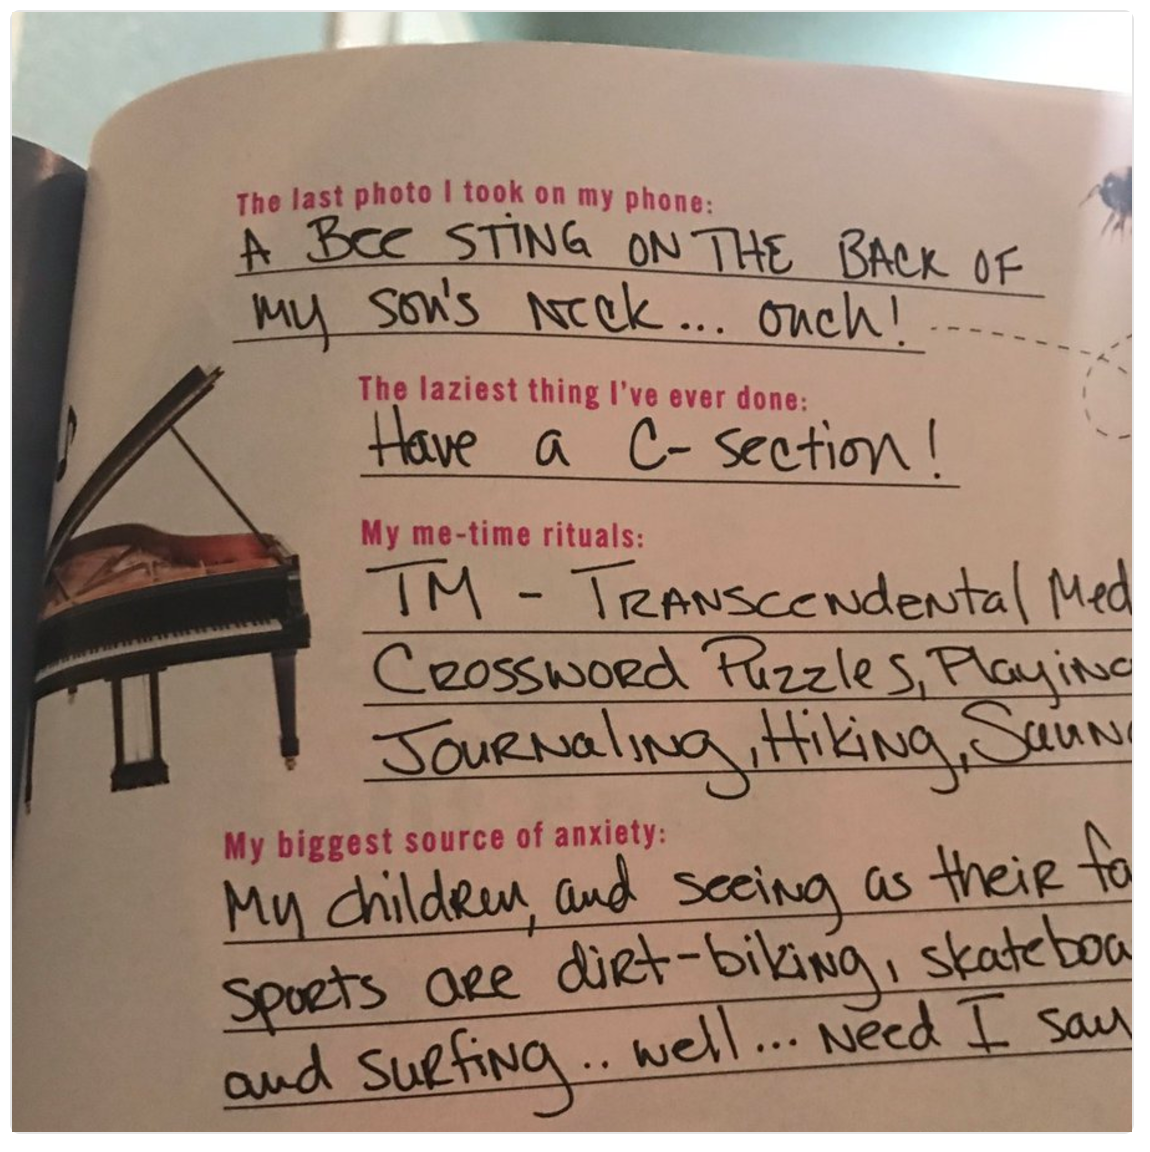 The last photo I took on my phone:
A Bee STiNG ON THE BACK OF
my son's Neck... ouch!
The laziest thing I've ever done:
Have a C-section!
My me-time rituals:
TM - TRANSceNdeNtal Med
CROSSWORD PuzzleS, PlayiNG
JOURNaliNg, HikiNg, SauN
My biggest source of anxiety:
My childReN, and seeiNg as theiR fa
spoRts aRe diRt-bikiNg, skateboa
and suRfiNg.. well... Need I say